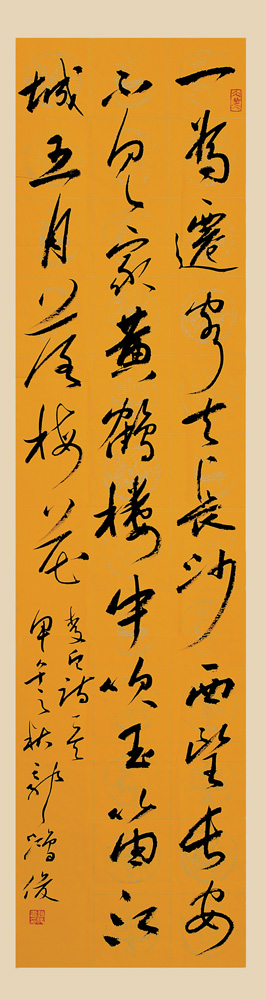 一為遷客去長沙西望長安
不見家黃鶴樓中吹玉笛江
城五月落梅花
李白詩一首
甲午之秋